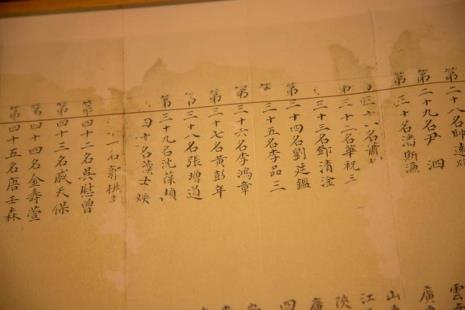 第二十八名帥遠
第二十九名尹泗
第三十名斯
名蕭
三十二名華祝三
三十三名清淦
第三十四名劉廷鑑
三十五名李品三
第三十六名李鴻章
第三十七名黃彭年
三十八名張增道
第三十九名沈葆楨
四十名士
一名
第四十二名吳慰曾
第四十三名戚天保
第四十四名金壽萱
第四十五名唐壬森
雲
廣
山
江
陝
廣
四